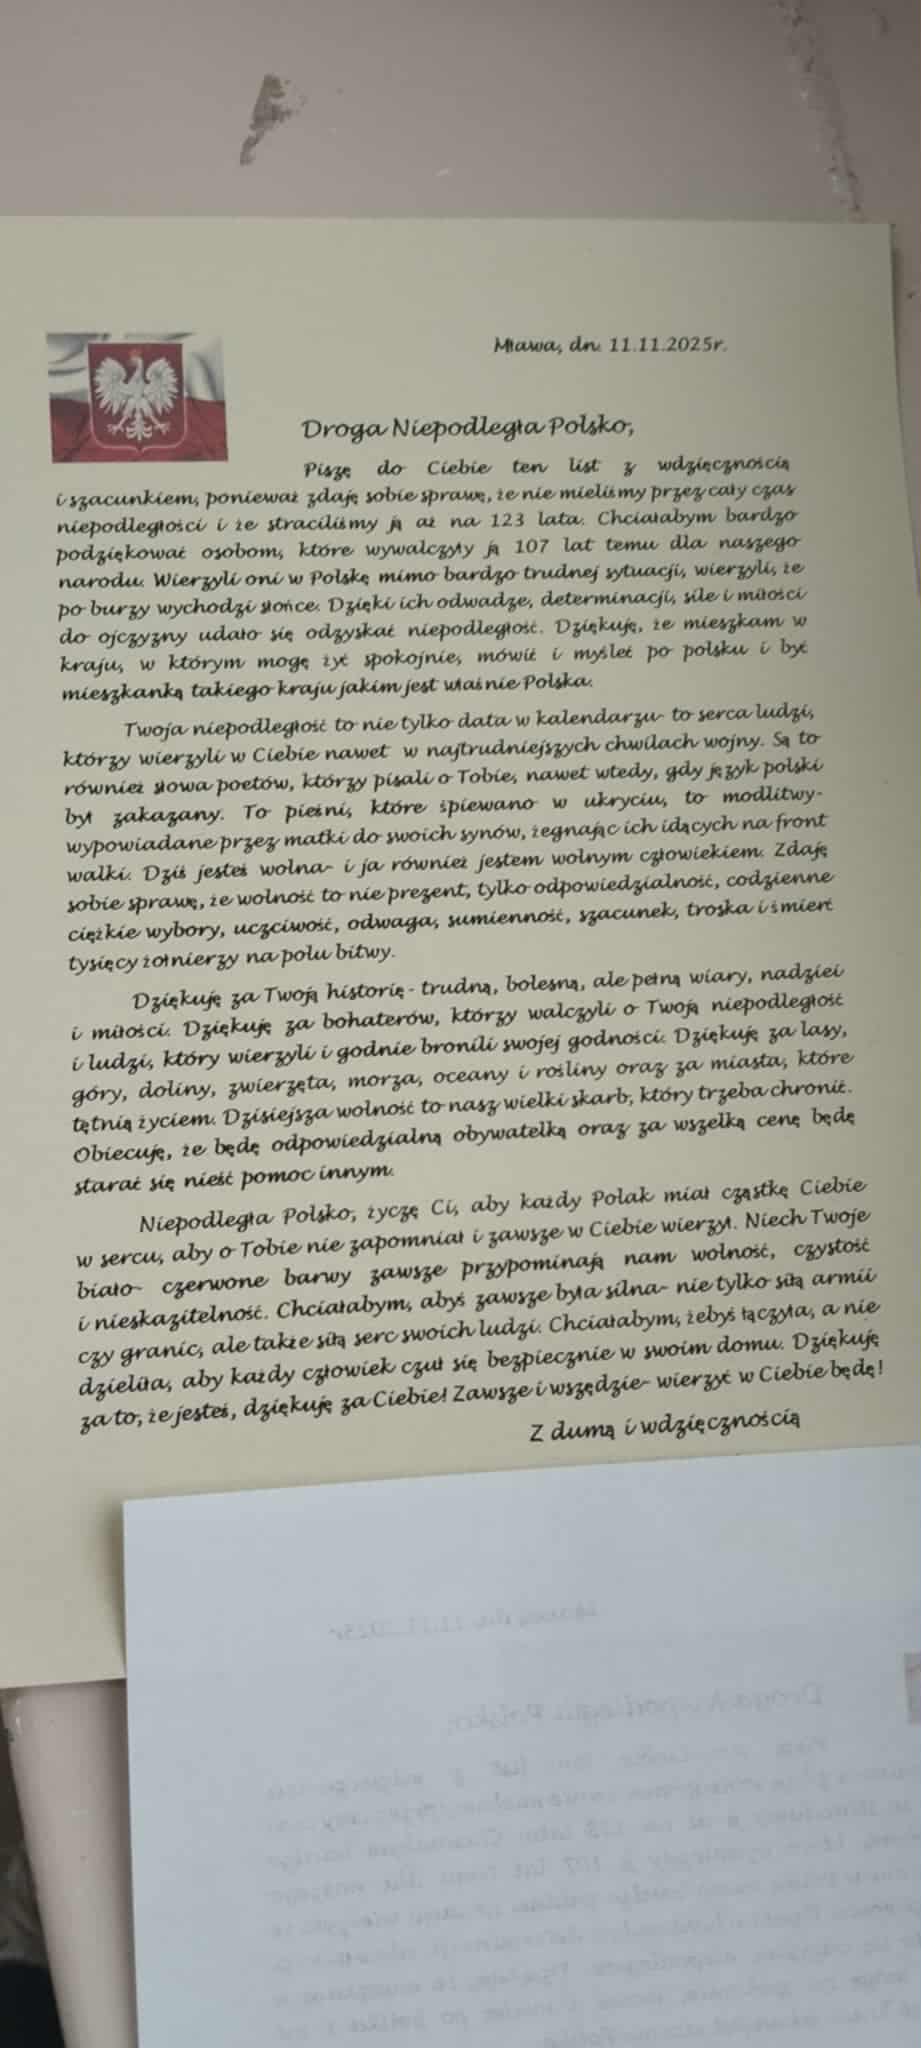 Mława, dn. 11.11.2025r.
Droga Niepodległa Polsko,
Piszę do Ciebie ten list z wdzięcznością
i szacunkiem, ponieważ zdaję sobie sprawę, że nie mieliśmy przez cały czas
niepodległości i że straciliśmy ją aż na 123 lata. Chciałabym bardzo
podziękować osobom, które wywalczyły ją 107 lat temu dla naszego
narodu. Wierzyli oni w Polskę mimo bardzo trudnej sytuacji, wierzyli, że
po burzy wychodzi słońce. Dzięki ich odwadze, determinacji, sile i miłości
do ojczyzny udało się odzyskać niepodległość. Dziękuję, że mieszkam w
kraju, w którym mogę żyć spokojnie, mówić i myśleć po polsku i być
mieszkanką takiego kraju jakim jest właśnie Polska.
Twoja niepodległość to nie tylko data w kalendarzu- to serca ludzi,
którzy wierzyli w Ciebie nawet w najtrudniejszych chwilach wojny. Są to
również słowa poetów, którzy pisali o Tobie, nawet wtedy, gdy język polski
był zakazany. To pieśni, które śpiewano w ukryciu, to modlitwy-
wypowiadane przez matki do swoich synów, żegnając ich idących na front
walki. Dziś jesteś wolna- i ja również jestem wolnym człowiekiem. Zdaję
sobie sprawę, że wolność to nie prezent, tylko odpowiedzialność, codzienne
ciężkie wybory, uczciwość, odwaga, sumienność, szacunek, troska i śmierć
tysięcy żołnierzy na polu bitwy.
Dziękuję za Twoją historię- trudną, bolesną, ale pełną wiary, nadziei
i miłości. Dziękuję za bohaterów, którzy walczyli o Twoją niepodległość
i ludzi, który wierzyli i godnie bronili swojej godności. Dziękuję za lasy,
góry, doliny, zwierzęta, morza, oceany i rośliny oraz za miasta, które
tętnią życiem. Dzisiejsza wolność to nasz wielki skarb, który trzeba chronić.
Obiecuję, że będę odpowiedzialną obywatelką oraz za wszelką cenę będę
starać się nieść pomoc innym.
Niepodległa Polsko, życzę Ci, aby każdy Polak miał cząstkę Ciebie
w sercu, aby o Tobie nie zapomniał i zawsze w Ciebie wierzył. Niech Twoje
biało- czerwone barwy zawsze przypominają nam wolność, czystość
i nieskazitelność. Chciałabym, abyś zawsze była silna- nie tylko siłą armii
czy granic, ale także siłą serc swoich ludzi. Chciałabym, żebyś łączyła, a nie
dzieliła, aby każdy człowiek czuł się bezpiecznie w swoim domu. Dziękuję
za to, że jesteś, dziękuję za Ciebie! Zawsze i wszędzie- wierzyć w Ciebie będę!
Z dumą i wdzięcznością